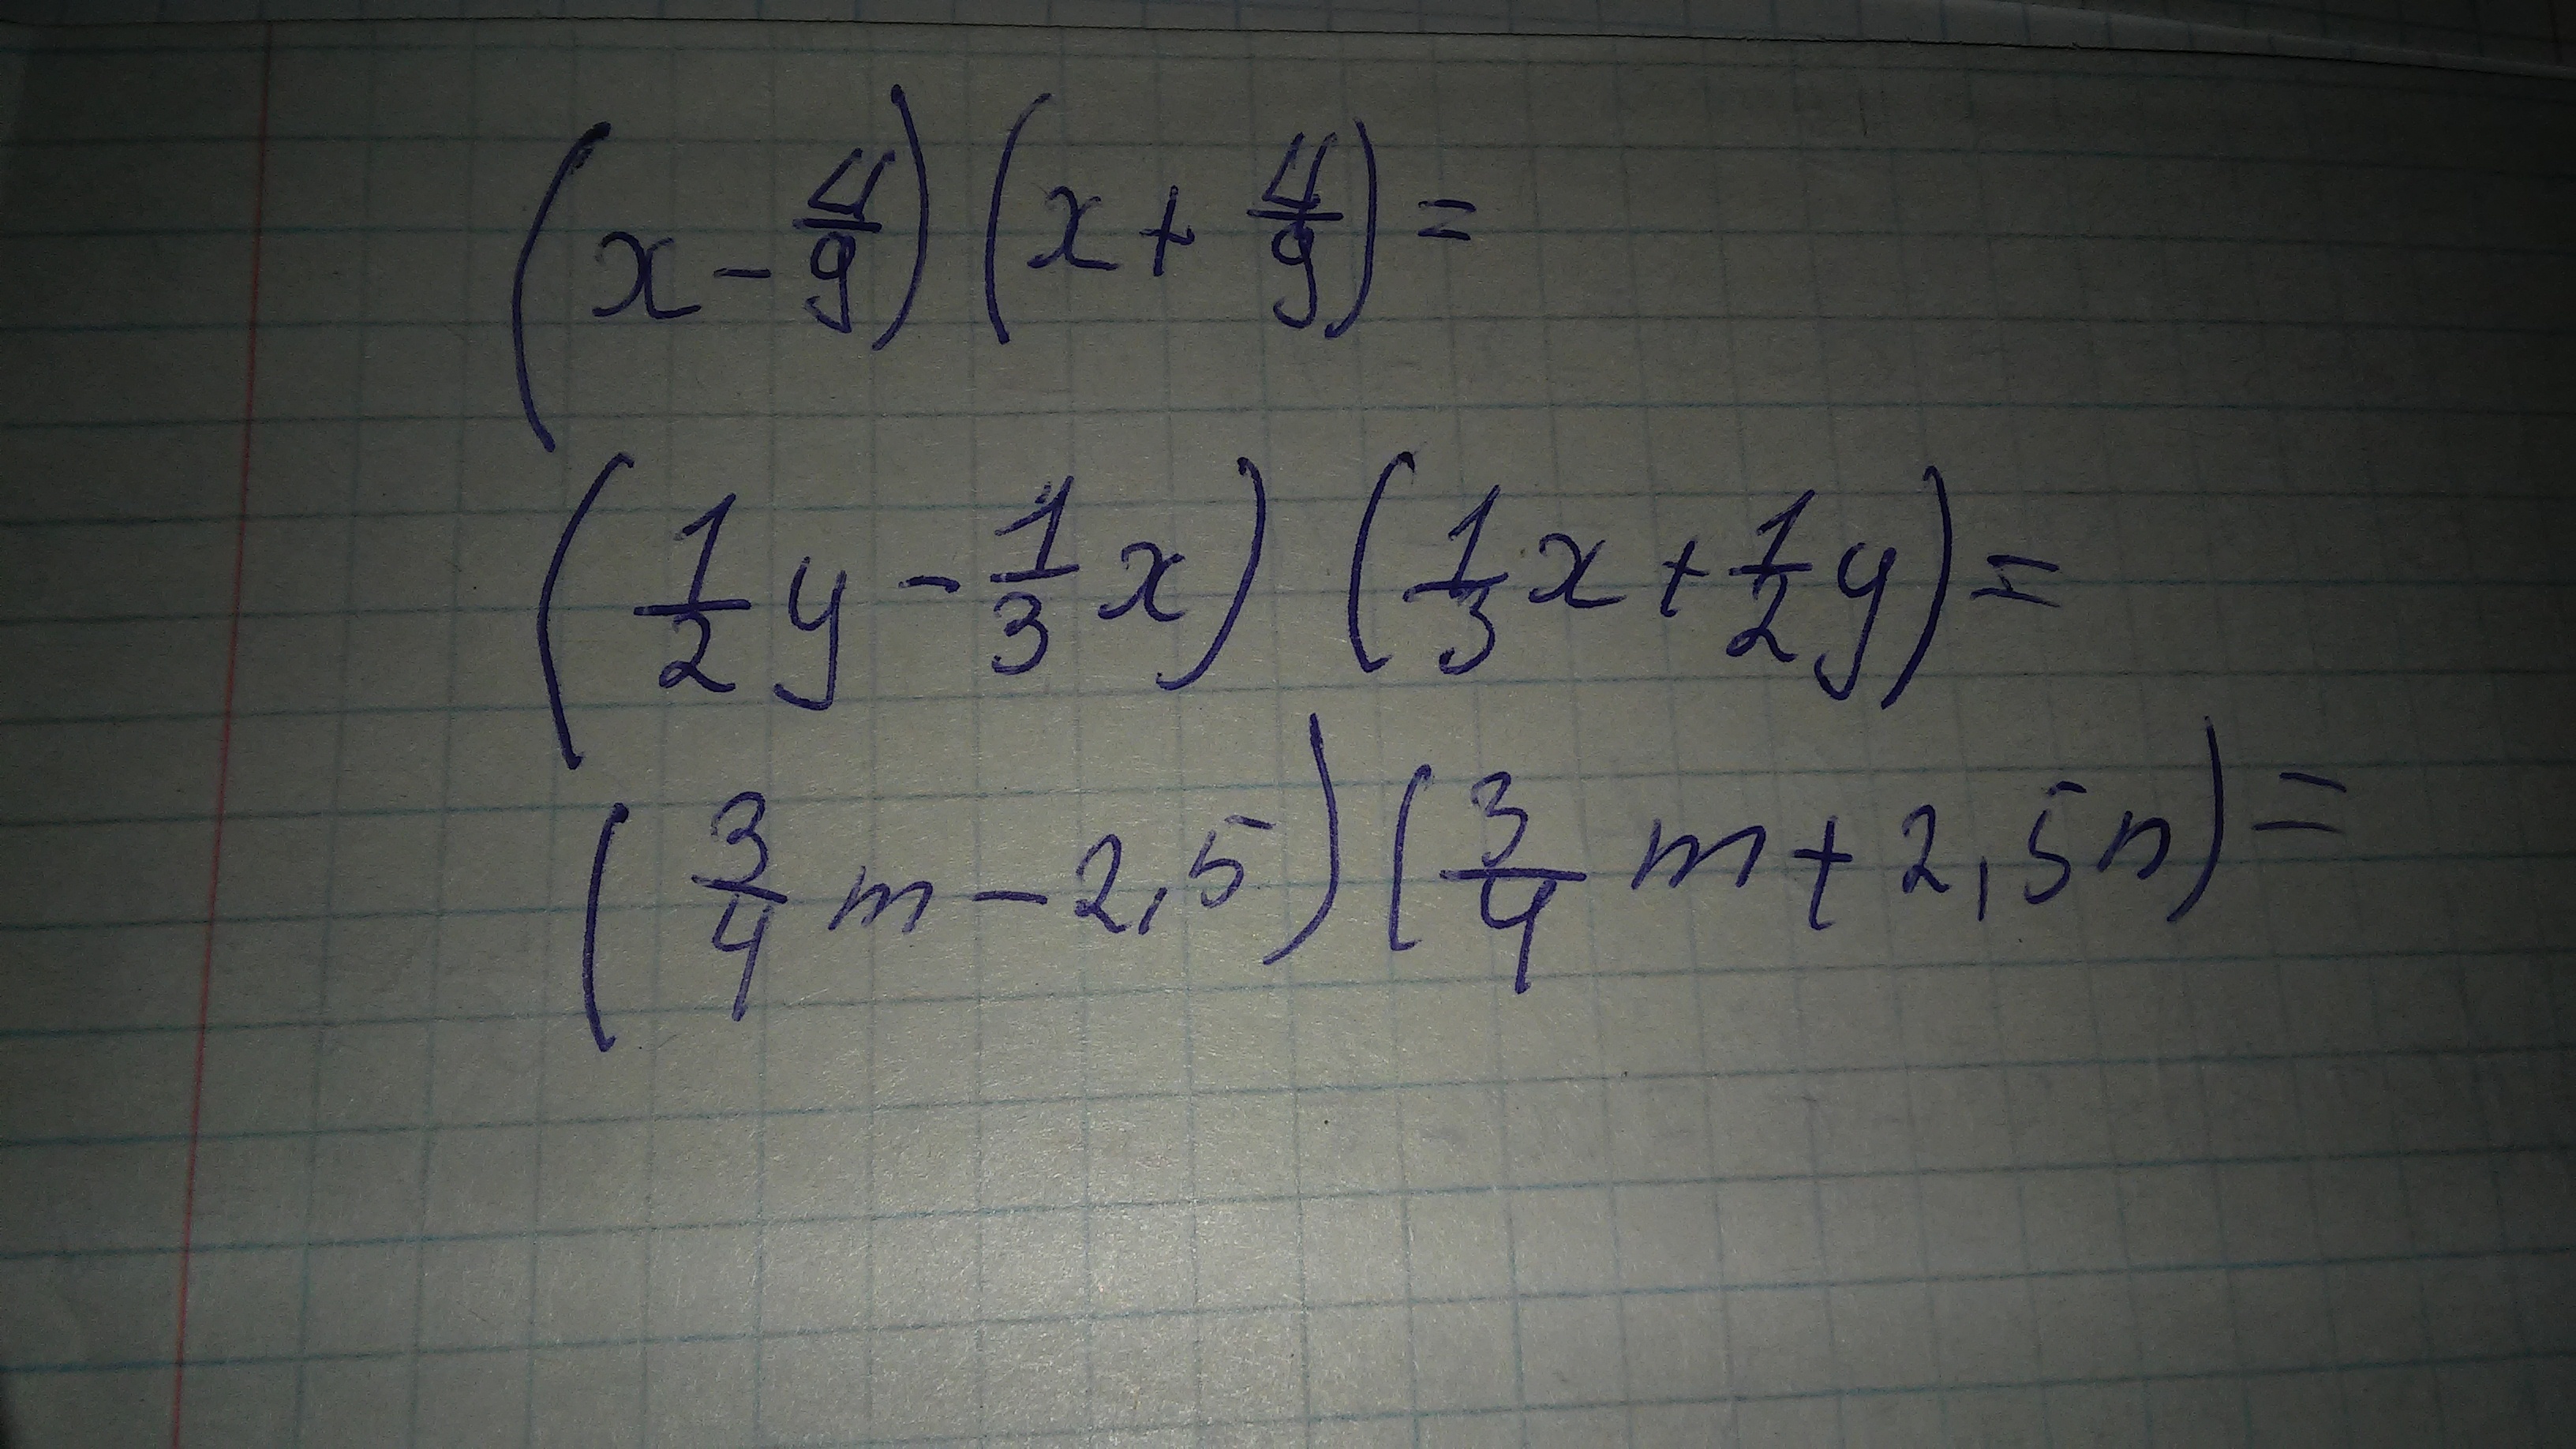 (x - 4/9)(x + 4/9) =
(1/2 y - 1/3 x)(1/3 x + 1/2 y) =
(3/4 m - 2,5)(3/4 m + 2,5n) =